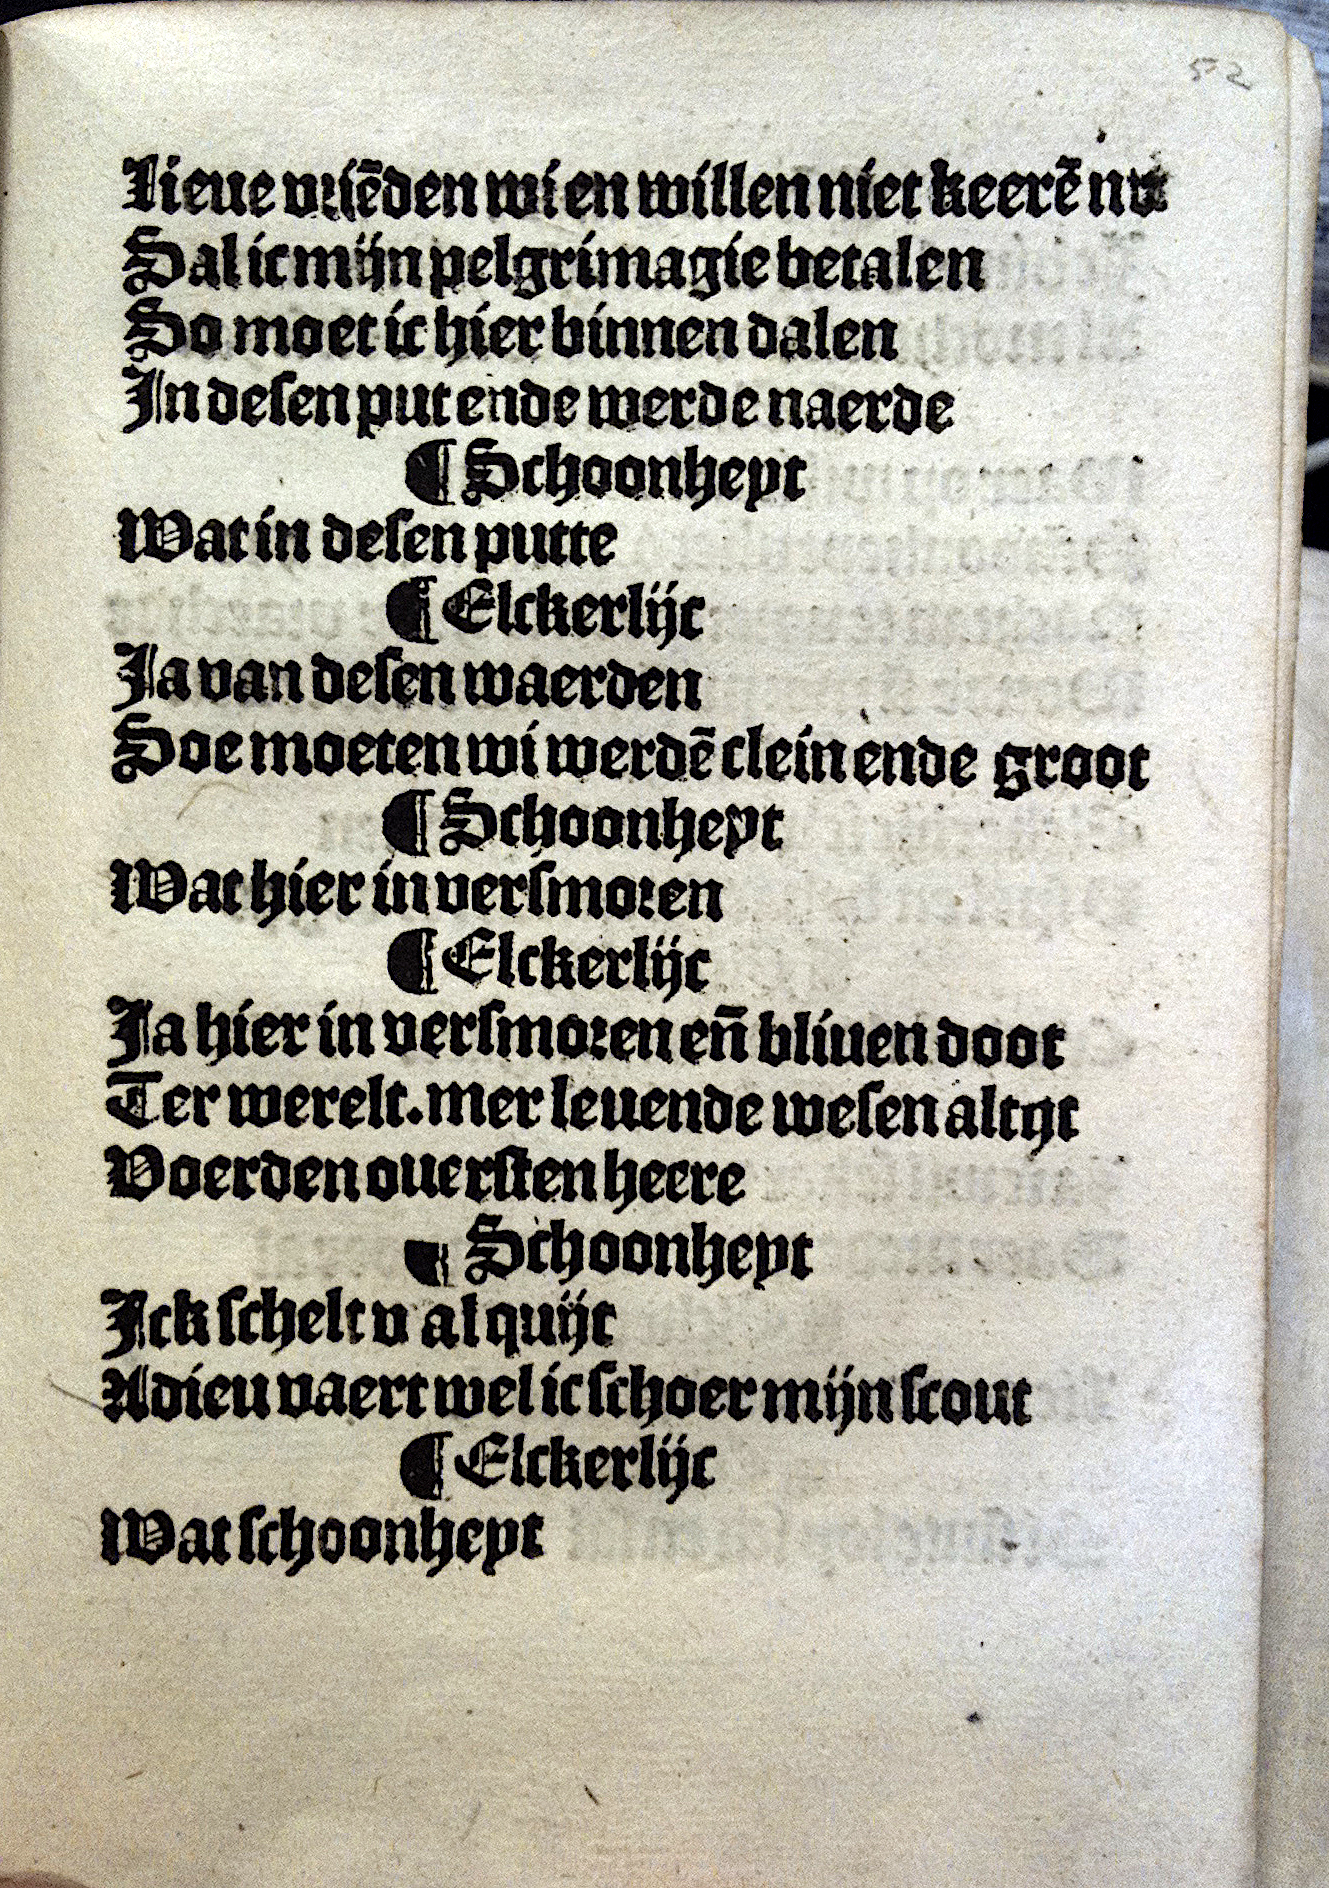 52
Lieue vriēden wi en willen niet keerē nv
Sal ic mijn pelgrimagie betalen
So moet ic hier binnen dalen
In desen put ende werde naerde
¶ Schoonheyt
Wat in desen putte
¶ Elckerlijc
Ja van desen waerden
Soe moeten wi werdē clein ende groot
¶ Schoonheyt
Wat hier in versmoren
¶ Elckerlijc
Ja hier in versmoren eñ bliuen doot
Ter werelt. mer leuende wesen altijt
Voer den ouersten heere
¶ Schoonheyt
Ick schelt v al quijt
Adieu vaert wel ic schoer mijn scout
¶ Elckerlijc
Wat schoonheyt